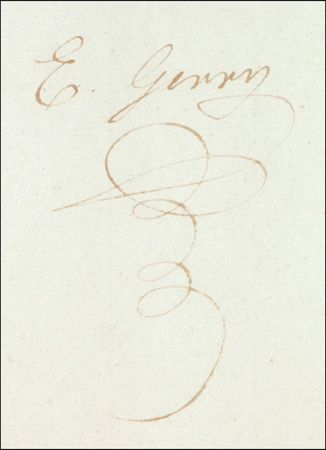 E. Gerry